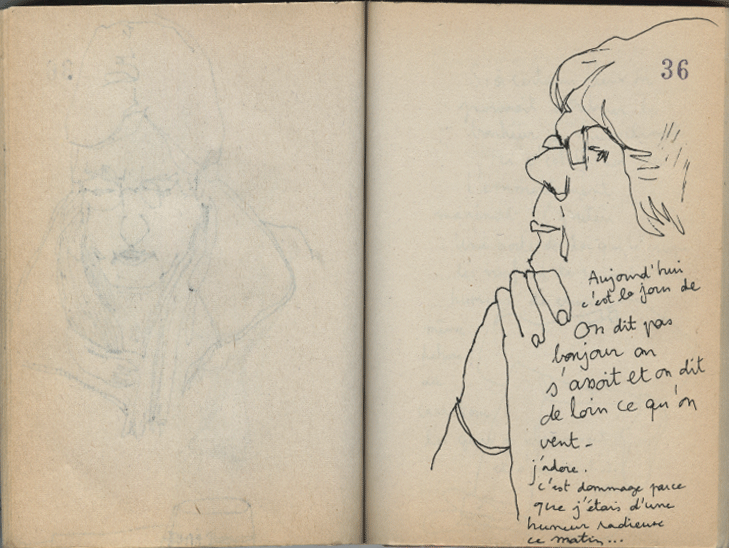 36
Aujourd'hui
c'est le jour de
On dit pas
bonjour on
s'assoit et on dit
de loin ce qu'on
veut -
j'adore.
c'est dommage parce
que j'étais d'une
humeur radieuse
ce matin...